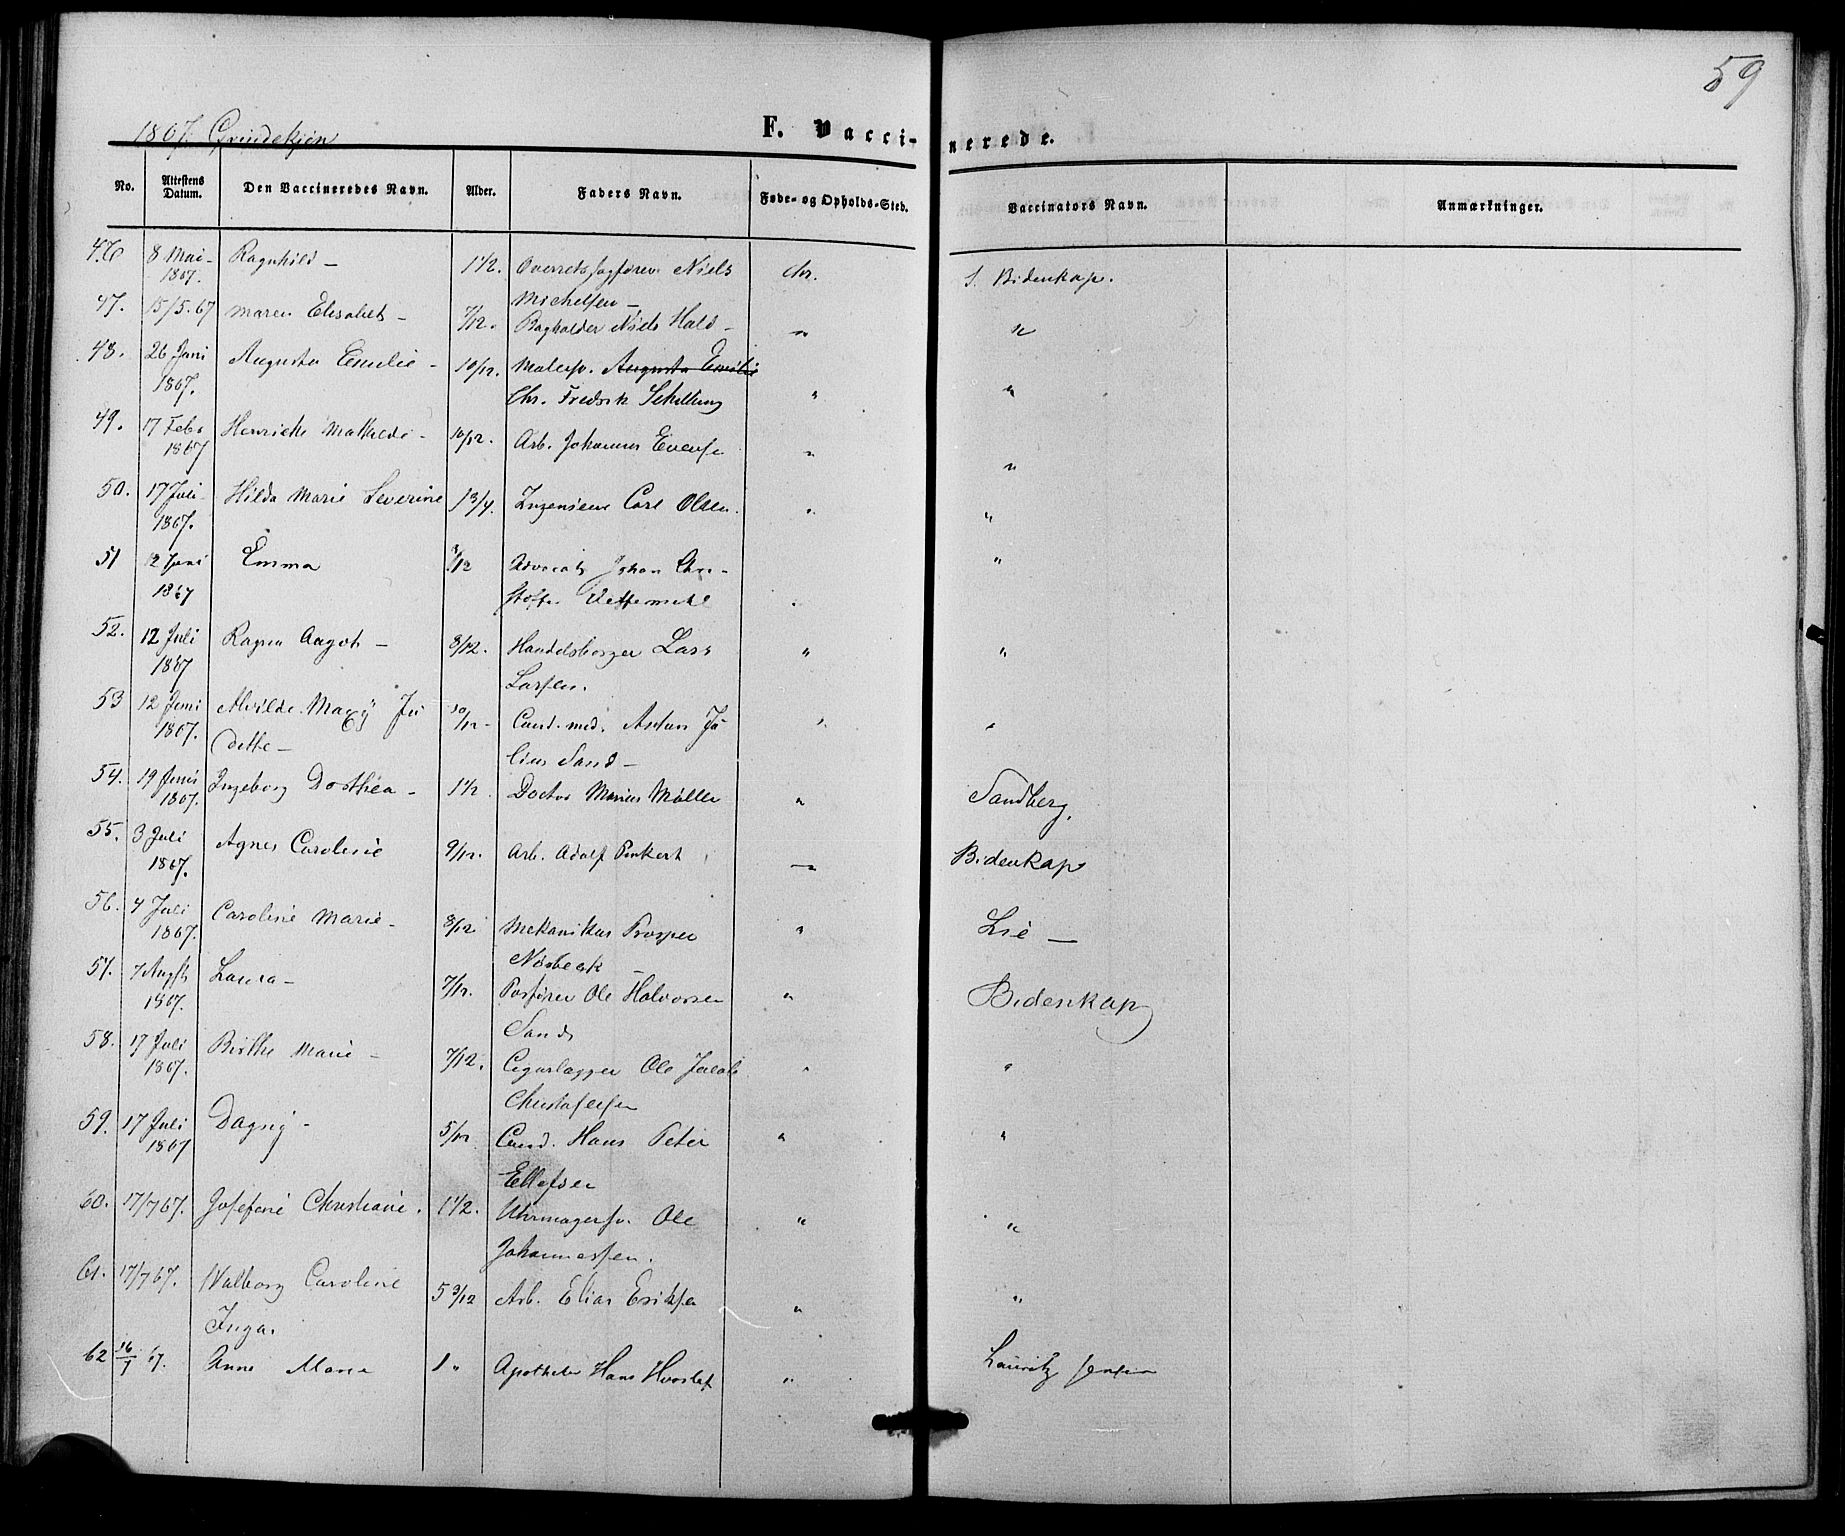 59
1867. Qvindekjøn
F. Vacci-nerede.
No. Attestens Datum. Den Vaccineredes Navn. Alder. Faders Navn. Føde- og Opholds-Sted. Vaccinators Navn. Anmærkninger.
46 8 Mai 1867. Ragnhild – 1 1/2. Overretssagfører Niels Chr. J. Bidenkap.
Michelsen –
47. 15/5.67 Maren Elisabet – 7/12. Bogholder Niels Hald – " "
48. 26 Juni 1867. Augusta Emilie – 10/12. Malersv. Augusta Emilie
Chr. Fredrik Schilling " "
49. 17 Febr 1867 Henriette Mathilde – 10/12. Arb. Johannes Evensen " "
50. 17 Juli 1867. Hilda Marie Severine 1 3/4. Ingenieur Carl Olsen. " "
51 12 Juni 1867 Emma 8/12 Advocat Johan Chri- "
stoffer "
52. 12 Juli 1867 Ragna Aagot – 8/12. Handelsborger Lars " "
Larsen.
53 12 Juni 1867. Alvilde Magij Ju 10/12 – Cand. med. Anton Ju- " "
dette – lius Sand –
54. 19 Juni 1867. Ingeborg Dorthea – 1 1/2 Doctor Marius Møller " Sandberg.
55. 3 Juli 1867. Agnes Caroline 9/12. Arb. Adolf Pinkert " Bidenkap
56. 4 Juli 1867. Caroline Marie – 8/12 Mekanikus Prosper " Lie –
Nørbeck –
57. 7 Augst 1867. Laura – 7/12. Ole Halvorsen " Bidenkap
Sand
58. 17 Juli 1867. Birthe Marie – 7/12. Ole Jacob " "
Christofersen
59. 17 Juli 1867 Dagny – 5/12 Cand. Hans Peter " "
Ellefsen
60. 17/7 67. Josefine Christiane. 1 1/2. Uhrmagersv. Ole " "
Johannessen.
61. 17/7 67. Walborg Caroline 5 3/12 Arb. Elias Eriksen " "
Inga.
62 16/7 67. Anne Marie 1 " Apotheker Hans " Lauritz Jensen